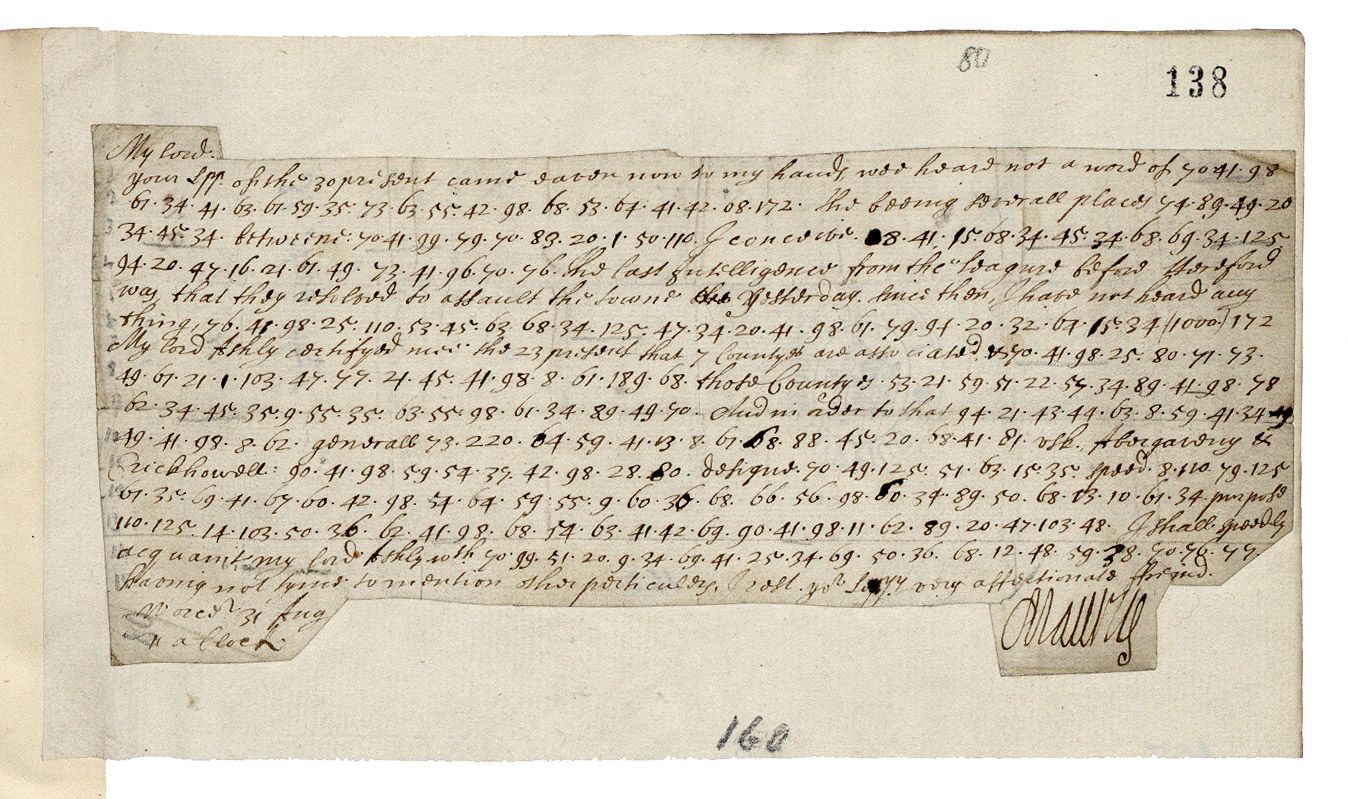 80
138
My Lord.
Your Lpp. of the 30 present came eaven now to my hands, wee heard not a word of 70.41.98
61.34.41.63.61.59.35.73.63.55.42.98.68.53.64.41.42.08.172. the beeing severall places 74.89.49.20
34.45.34. betweene 70.41.99.79.70.83.20.1.50.110. I conceive 41.15.68.34.45.34.68.69.34.125
94.20.47.16.21.61.49.73.41.96.70.76. the last Intelligence from the leagure before Hereford
was, that they resolved to assault the towne yesterday. since then, I have not heard any
thing, 76.41.98.25.110.53.45.63.68.34.125.47.34.20.41.98.61.79.94.20.32.64.15.34 /1000/ 172
My Lord Ashly certifyed mee the 23 present that 7 Countyes are associated 70.41.98.25.80.71.73.
49.67.21.1.103.47.77.21.45.41.98.8.61.189.68. those Countyes 53.21.59.51.22.57.34.89.41.98.78
62.34.45.35.9.55.35.63.55.98.61.34.89.49.70. And in order to that 94.21.43.49.63.8.59.41.34
49.41.98.8.62. generall 73.220.64.59.41.13.8.61.68.88.45.20.68.41.81. Usk. Abergaveny &
Crickhowell: 90.41.98.59.54.37.42.98.28.80. designe. 70.49.125.51.63.15.35 speed. 8.110.79.125
61.35.69.41.67.60.42.98.54.64.59.55.9.60.36.68.66.56.98.60.34.89.50.68.13.10.61.34. purpose
110.125.14.103.50.36.62.41.98.68.14.63.41.42.69.90.41.98.11.62.89.20.47.103.48. I shall speedly
acquaint my lord Ashly wth. 70.99.51.20.9.34.69.41.25.34.69.50.36.68.12.48.59.38.70.76.77.
having not tyme to mention other perticulers, I rest. yor Lopps very affectionate freind.
Worcer 31 Aug
11 a Clock.
Maurice
160